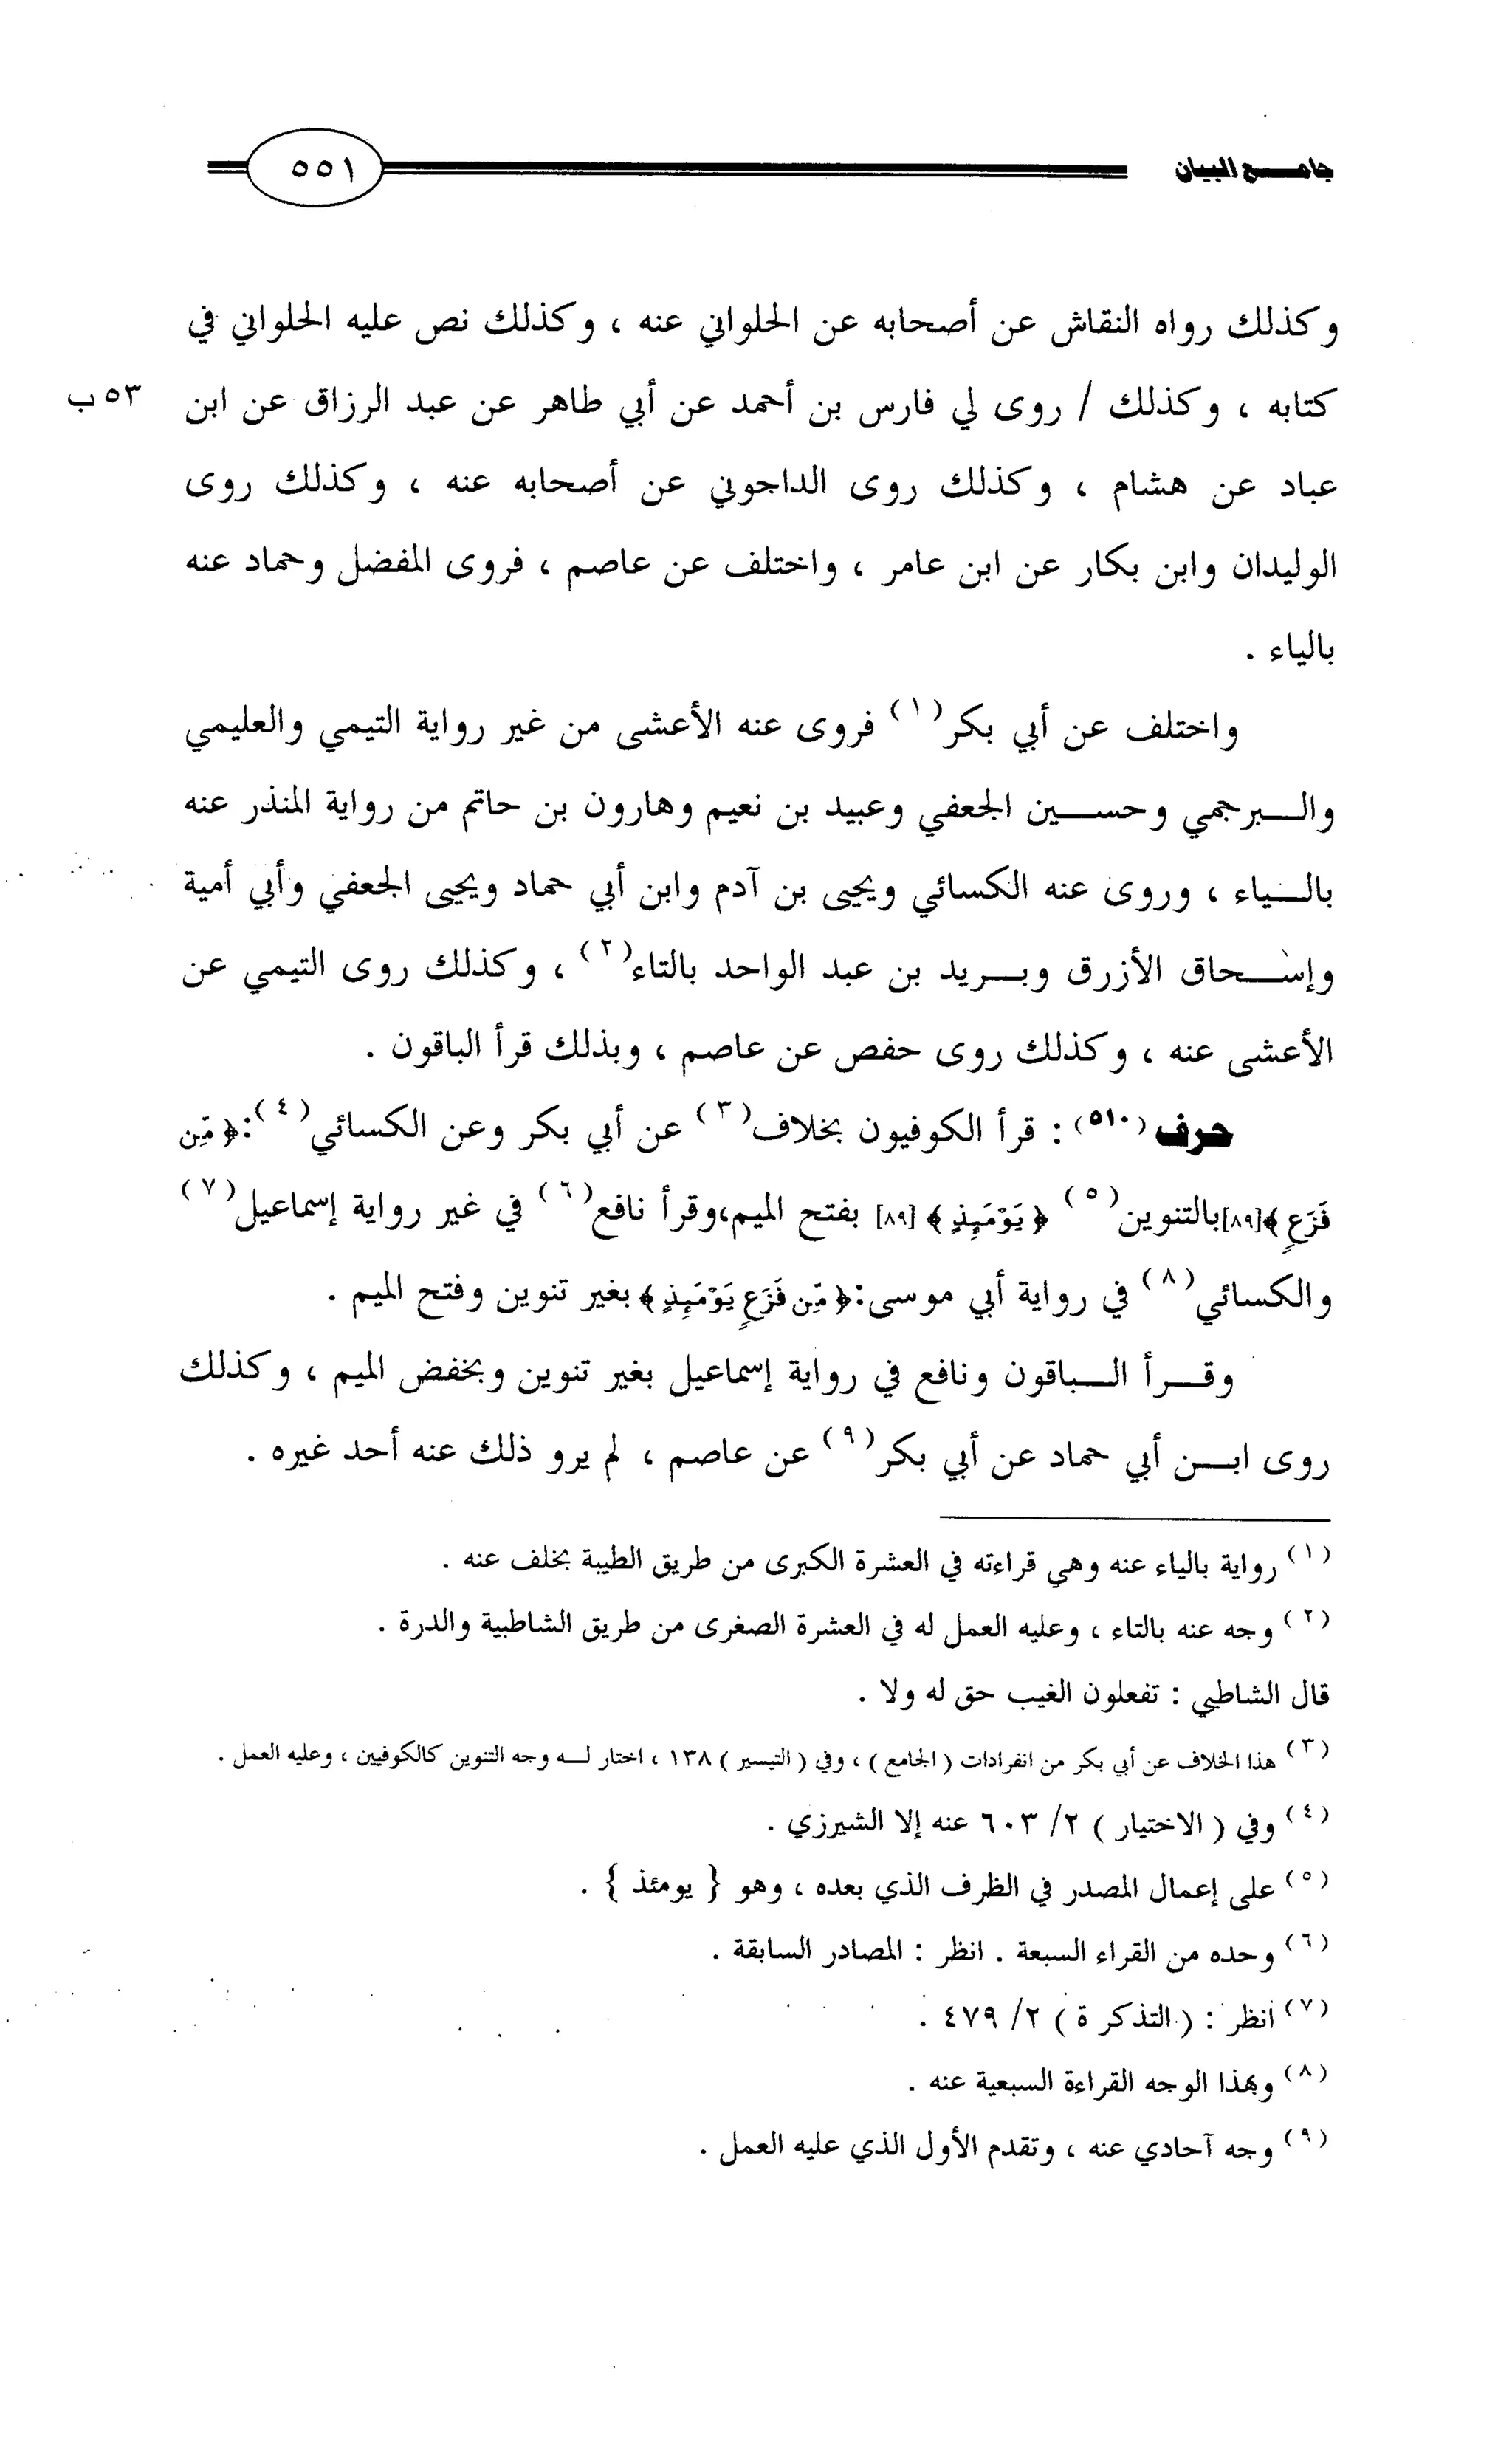 جامع البيان
٥٥١
وكذلك رواه النقاش عن أصحابه عن الحلواني عنه ، وكذلك نص عليه الحلواني في
كتابه ، وكذلك / روى لي فارس بن أحمد عن أبي طاهر عن عبد الرزاق عن ابن
٥٣ ب
عباد عن هشام ، وكذلك روى الداجوني عن أصحابه عنه ، وكذلك روى
الوليدان وابن بكار عن ابن عامر ، واختلف عن عاصم ، فروى المفضل وحماد عنه
بالياء .
واختلف عن أبي بكر(١) فروى عنه الأعشى من غير رواية التيمي والعليمي
والبرجمي وحسين الجعفي وعبيد بن نعيم وهارون بن حاتم من رواية المنذر عنه
بالياء ، وروى عنه الكسائي ويحيى بن آدم وابن أبي حماد ويحيى الجعفي وأبي أمية
وإسحاق الأزرق وبريد بن عبد الواحد بالتاء(٢) ، وكذلك روى التيمي عن
الأعشى عنه ، وكذلك روى حفص عن عاصم ، وبذلك قرأ الباقون .
حرف (٥١٠) : قرأ الكوفيون بخلاف(٣) عن أبي بكر وعن الكسائي(٤):﴿مِّن
فَزَعٍ﴾[٨٩]بالتنوين(٥) ﴿ يَوْمَئِذٍ ﴾ [٨٩] بفتح الميم،وقرأ نافع(٦) في غير رواية إسماعيل(٧)
والكسائي(٨) في رواية أبي موسى:﴿مِّن فَزَعٍ يَوْمَئِذٍ ﴾ بغير تنوين وفتح الميم .
وقرأ الباقون ونافع في رواية إسماعيل بغير تنوين وبخفض الميم ، وكذلك
روى ابن أبي حماد عن أبي بكر(٩) عن عاصم ، لم يرو ذلك عنه أحد غيره .
(١) رواية بالياء عنه وهي قراءته في العشرة الكبرى من طريق الطيبة بخلف عنه .
(٢) وجه عنه بالتاء ، وعليه العمل له في العشرة الصغرى من طريق الشاطبية والدرة .
قال الشاطبي : تفعلون الغيب حق له ولا .
(٣) هذا الخلاف عن أبي بكر من انفرادات ( الجامع ) ، وفي ( التيسير ) ١٣٨ ، اختار له وجه التنوين كالكوفيين ، وعليه العمل .
(٤) وفي ( الاختيار ) ٢/ ٦٠٣ عنه إلا الشيرزي .
(٥) على إعمال المصدر في الظرف الذي بعده ، وهو { يومئذ } .
(٦) وحده من القراء السبعة . انظر : المصادر السابقة .
(٧) انظر : ( التذكرة ) ٢/ ٤٧٩ .
(٨) وبهذا الوجه القراءة السبعية عنه .
(٩) وجه آحادي عنه ، وتقدم الأول الذي عليه العمل .